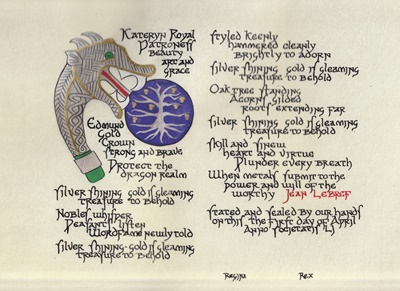 Kateryn Royal
Patroness
Beauty
art and
grace
Edmund
Gold
Crown
Strong and brave
Protect the
dragon realm
Silver shining gold is gleaming
treasure to behold
Nobles whisper
Peasants listen
Wordfame newly told
Silver shining gold is gleaming
treasure to behold
Styled keenly
hammered cleanly
Brightly to adorn
Silver shining gold is gleaming
treasure to behold
Oak tree standing
Acorns gilded
roots extending far
Silver shining gold is gleaming
treasure to behold
Skill and sinew
heart and virtue
Plunder every breath
When metals submit to the
power and will of the
worthy Jean LeBref
Stated and sealed by our hands
on this the first day of April
Anno Societatis
Regina Rex